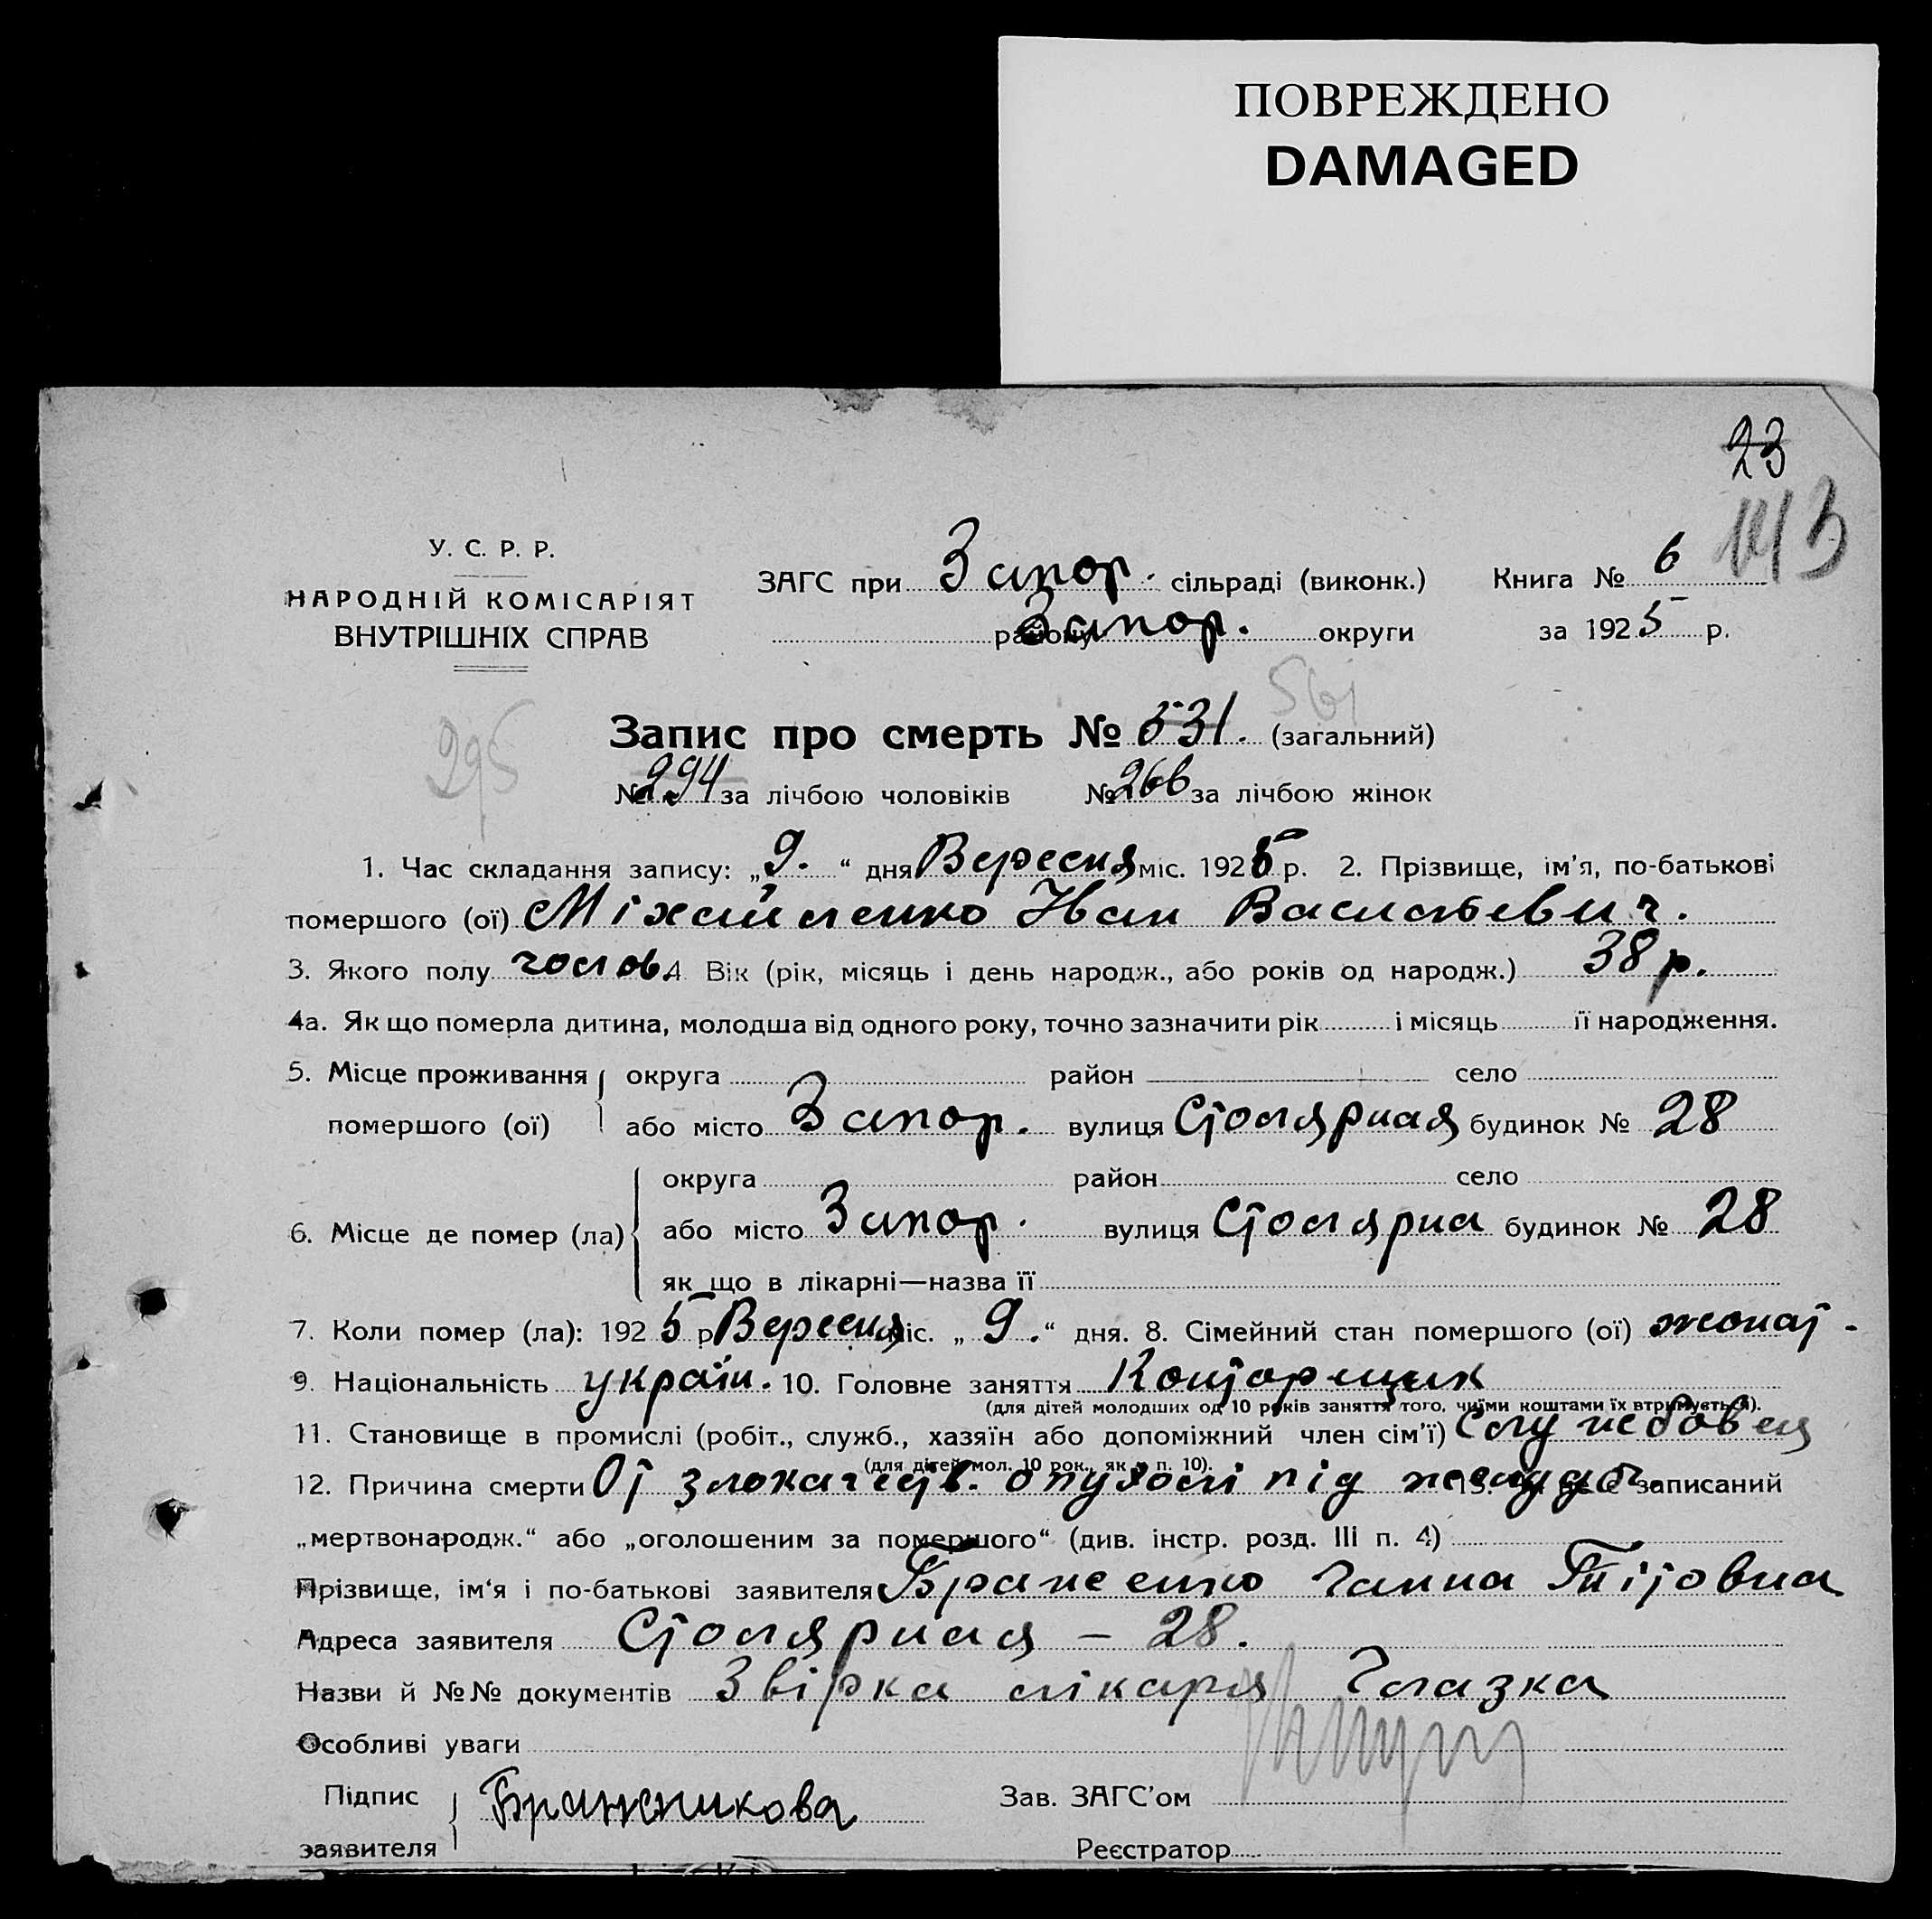 ПОВРЕЖДЕНО
DAMAGED
23
У. С. Р. Р.
НАРОДНІЙ КОМІСАРІЯТ
ВНУТРІШНІХ СПРАВ
ЗАГС при Запор. сільраді (виконк.)
району Запор. округи
Книга № 6
за 1925 р.
561
295
Запис про смерть № 531. (загальний)
№ 294 за лічбою чоловіків № 266 за лічбою жінок
1. Час складання запису: „9.“ дня Вересня міс. 1925 р. 2. Прізвище, ім'я, по-батькові
помершого (ої) Міхайленко Іван Васильевич.
3. Якого полу чолов. 4 Вік (рік, місяць і день народж., або років од народж.) 38 р.
4а. Як що померла дитина, молодша від одного року, точно зазначити рік і місяць її народження.
5. Місце проживання помершого (ої) округа район село
або місто Запор. вулиця Столярная будинок № 28
6. Місце де помер (ла) округа район село
або місто Запор. вулиця Столярна будинок № 28
як що в лікарні—назва її
7. Коли помер (ла): 1925 р Вересня міс. „9.“ дня. 8. Сімейний стан помершого (ої) жонат.
9. Національність україн. 10. Головне заняття Конторщик
(для дітей молодших од 10 років заняття того, чиїми коштами їх втримується).
11. Становище в промислі (робіт., служб., хазяїн або допоміжний член сім'ї) службовец
(для дітей мол. 10 рок., як у п. 10).
12. Причина смерти От злокачеств. опухолі під 13. записаний
„мертвонародж.“ або „оголошеним за помершого“ (див. інстр. розд. III п. 4)
Прізвище, ім'я і по-батькові заявителя Браженко Ганна Тітовна
Адреса заявителя Столярная — 28.
Назви й №№ документів Звірка лікаря Глазка
Особливі уваги
Підпис заявителя Бражникова
Зав. ЗАГС'ом
Реєстратор